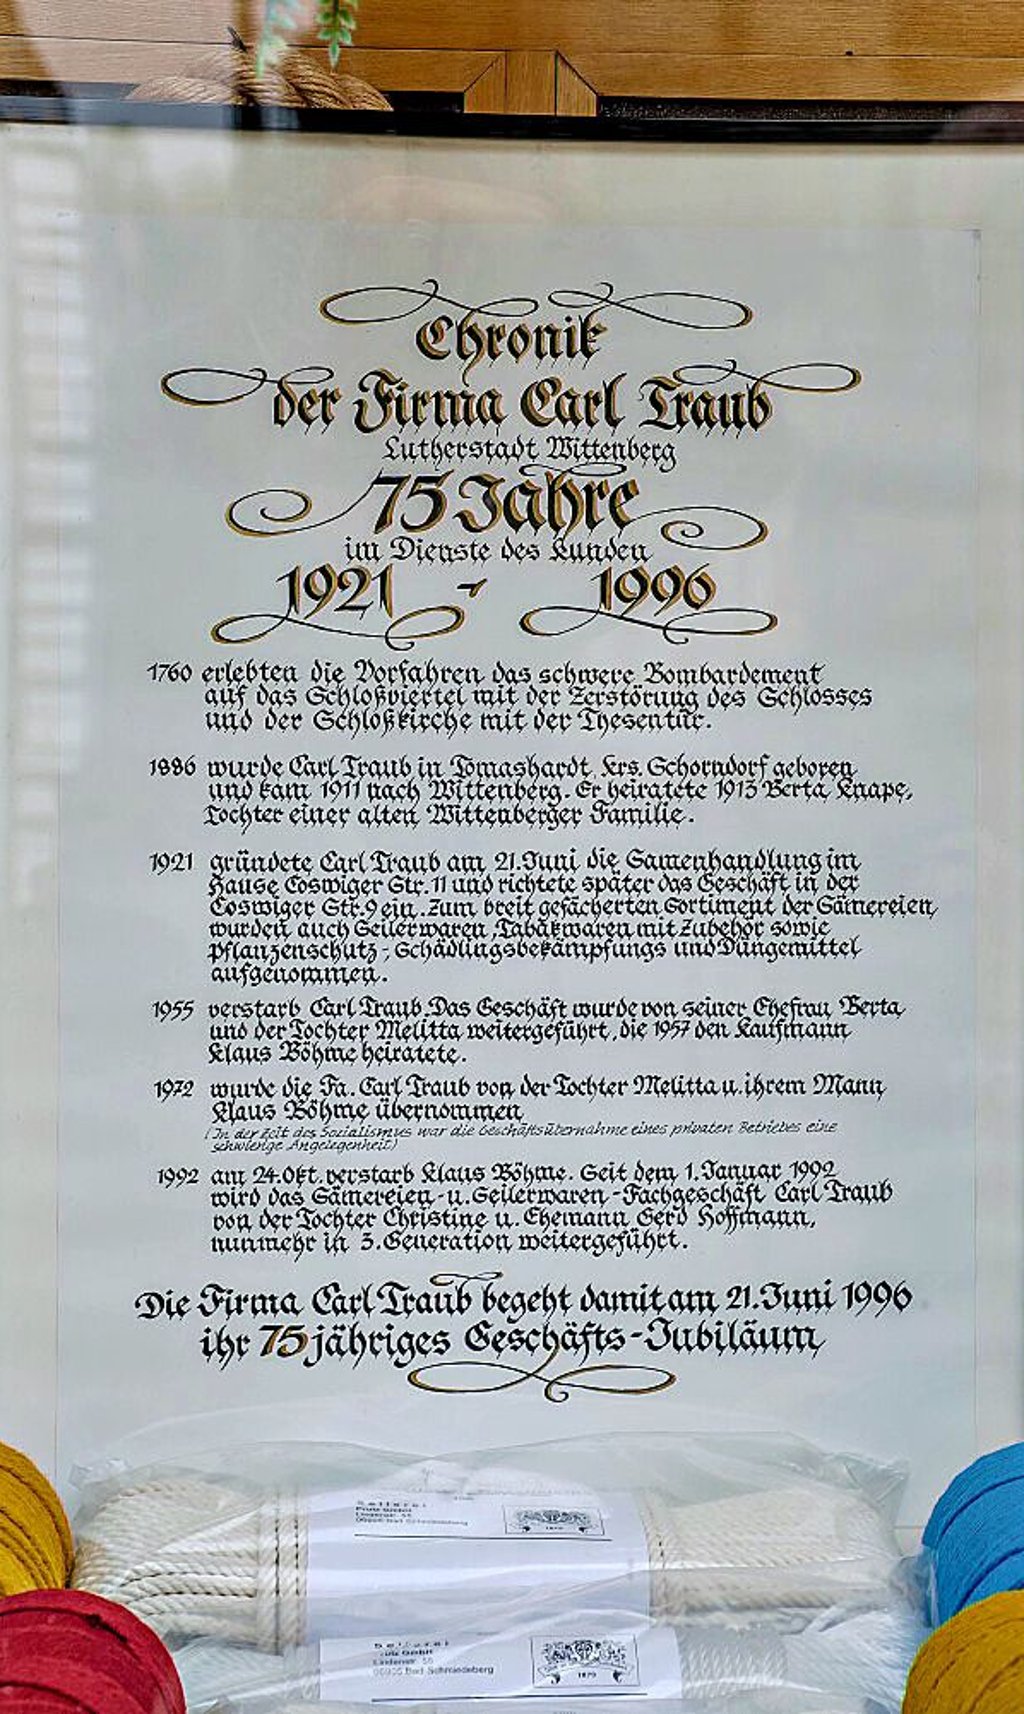 Chronik
der Firma Carl Traub
Lutherstadt Wittenberg
75 Jahre
im Dienste des Kunden
1921 - 1996
1760 erlebten die Vorfahren das schwere Bombardement
auf das Schloßviertel mit der Zerstörung des Schlosses
und der Schloßkirche mit der Thesentür.
1886 wurde Carl Traub in Tomashardt, Krs. Schorndorf geboren
und kam 1911 nach Wittenberg. Er heiratete 1913 Berta Knape,
Tochter einer alten Wittenberger Familie.
1921 gründete Carl Traub am 21. Juni die Samenhandlung im
Hause Coswiger Str. 11 und richtete später das Geschäft in der
Coswiger Str. 9 ein. Zum breit gefächerten Sortiment der Sämereien,
wurden auch Seilerwaren, Tabakwaren mit Zubehör sowie
Pflanzenschutz-, Schädlingsbekämpfungs und Düngemittel
aufgenommen.
1955 verstarb Carl Traub. Das Geschäft wurde von seiner Ehefrau Berta
und der Tochter Melitta weitergeführt, die 1957 den Kaufmann
Klaus Böhme heiratete.
1972 wurde die Fa. Carl Traub von der Tochter Melitta u. ihrem Mann
Klaus Böhme übernommen
(In der Zeit des Sozialismus war die Geschäftsübernahme eines privaten Betriebes eine
schwierige Angelegenheit)
1992 am 24. Okt. verstarb Klaus Böhme. Seit dem 1. Januar 1992
wird das Sämereien- u. Seilerwaren-Fachgeschäft Carl Traub
von der Tochter Christine u. Ehemann Gerd Hoffmann,
nunmehr in 3. Generation weitergeführt.
Die Firma Carl Traub begeht damit am 21. Juni 1996
ihr 75 jähriges Geschäfts-Jubiläum
Seilerei
GmbH
Lindenstr. 55
06905 Bad Schmiedeberg
1879
Seilerei
GmbH
Lindenstr. 55
06905 Bad Schmiedeberg
1879